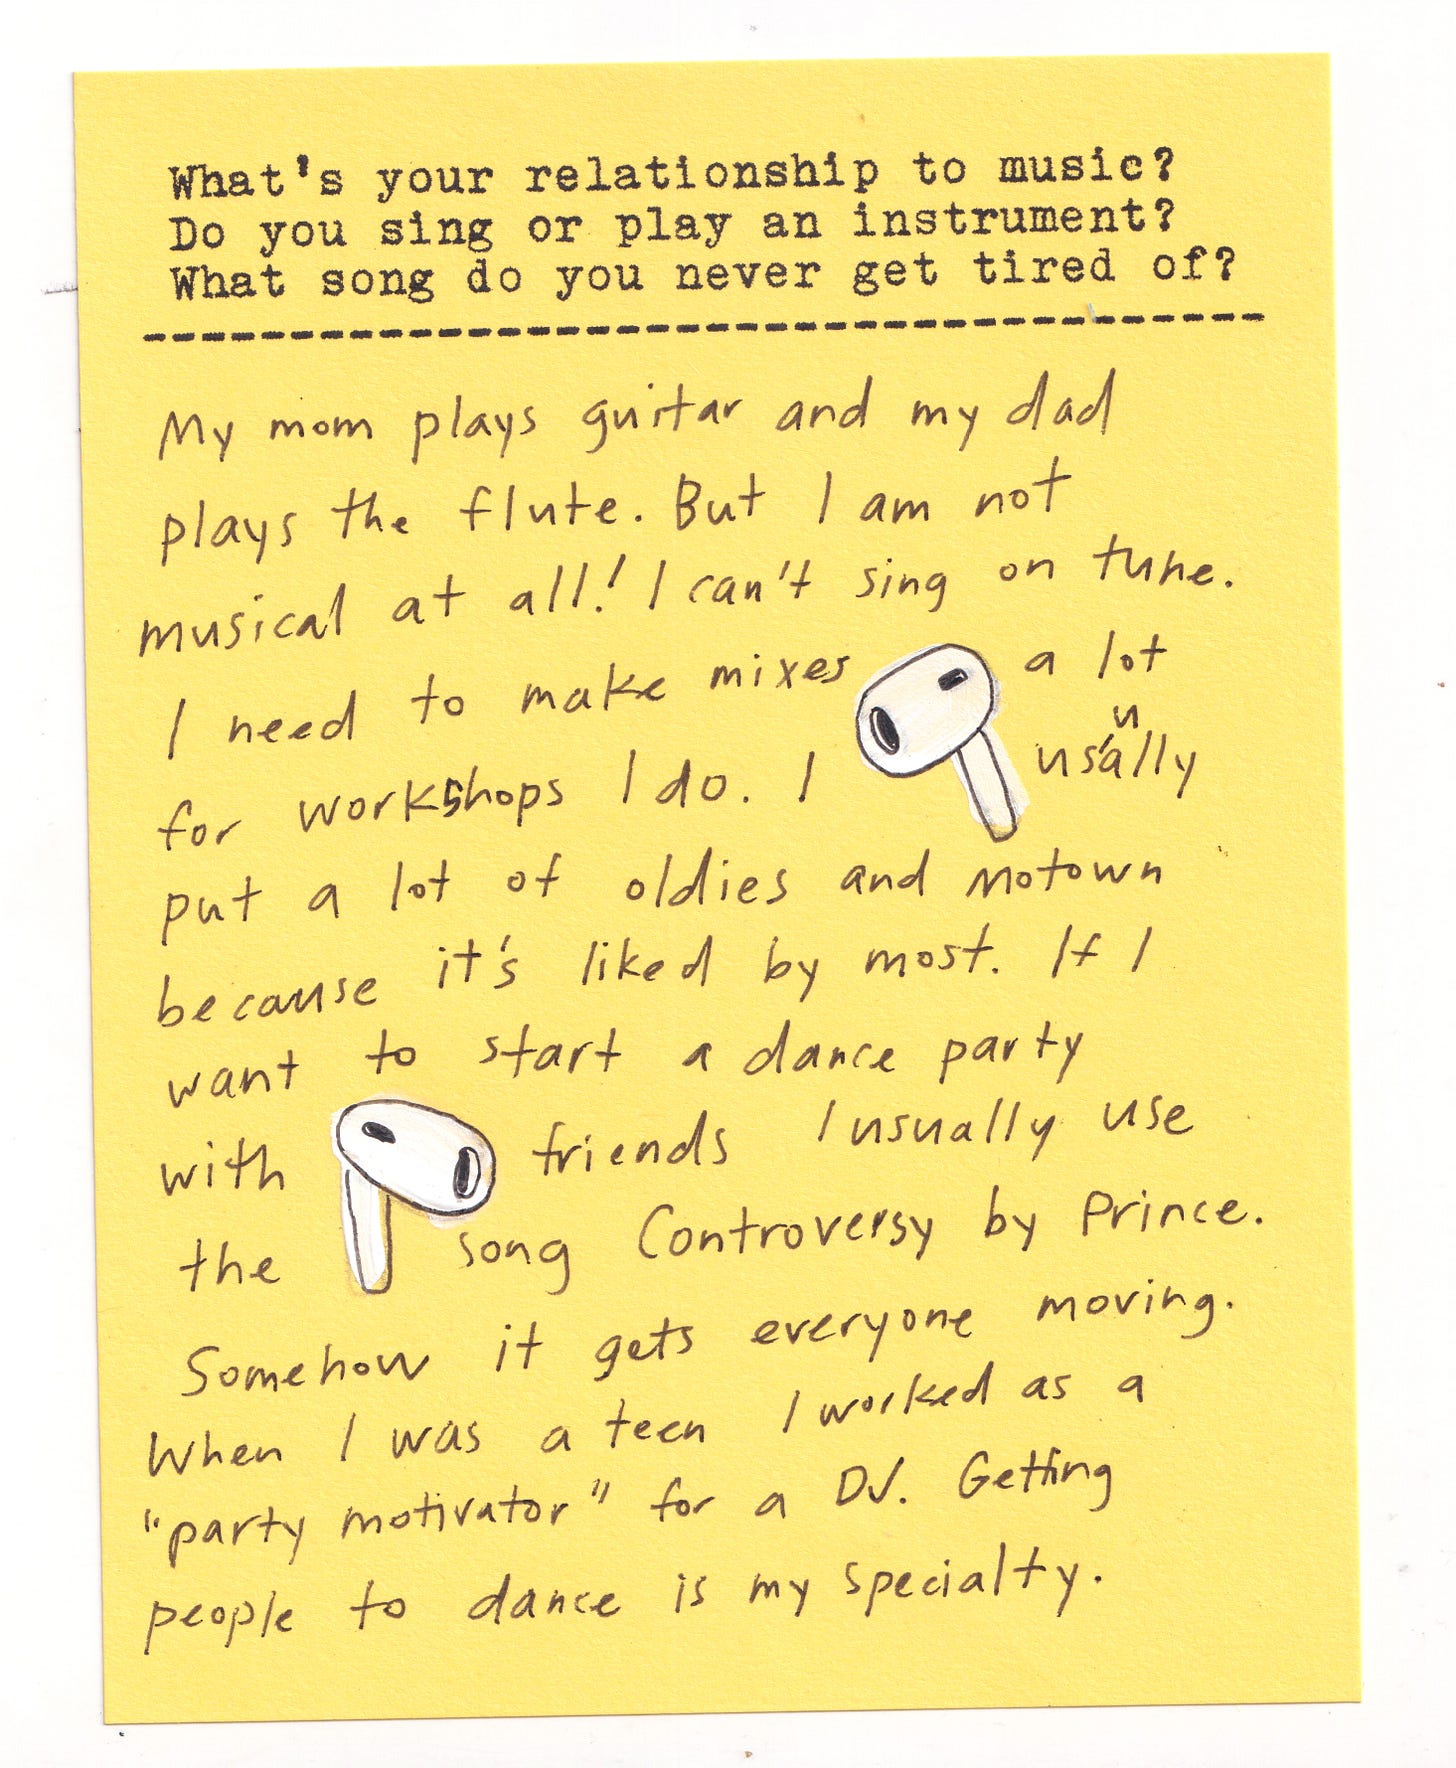 What's your relationship to music?
Do you sing or play an instrument?
What song do you never get tired of?
My mom plays guitar and my dad
plays the flute. But I am not
musical at all! I can't sing on tune.
I need to make mixes a lot
for workshops I do. I usually
put a lot of oldies and motown
because it's liked by most. If I
want to start a dance party
with friends I usually use
the song Controversy by Prince.
Somehow it gets everyone moving.
When I was a teen I worked as a
"party motivator" for a DJ. Getting
people to dance is my specialty.